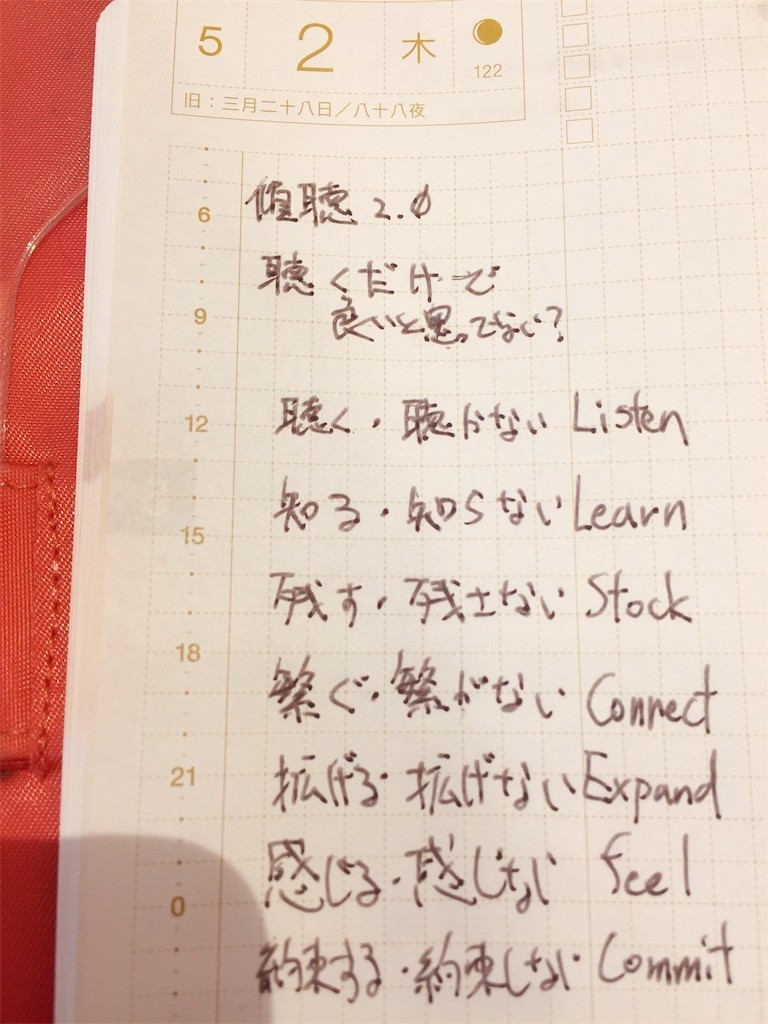 5 2 木 122
旧：三月二十八日／八十八夜
傾聴 2.0
6
聴くだけで
良いと思ってない？
9
聴く・聴かない Listen
12
知る・知らない Learn
15
残す・残さない Stock
18
繋ぐ・繋がない Connect
21
拡げる・拡げない Expand
感じる・感じない feel
0
約束する・約束しない Commit